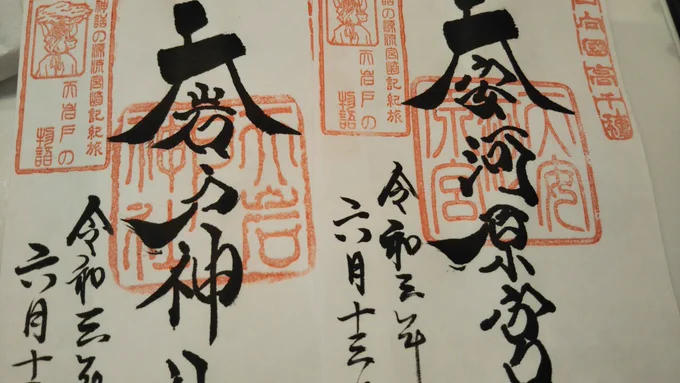 日向國高千穂
天安河原宮
天安
河原
宮
神話の源流宮崎記紀旅
天岩戸の
物語
令和三年
六月十三
天岩戸神社
天岩
神社
神話の源流宮崎記紀旅
天岩戸の
物語
令和三年
六月十